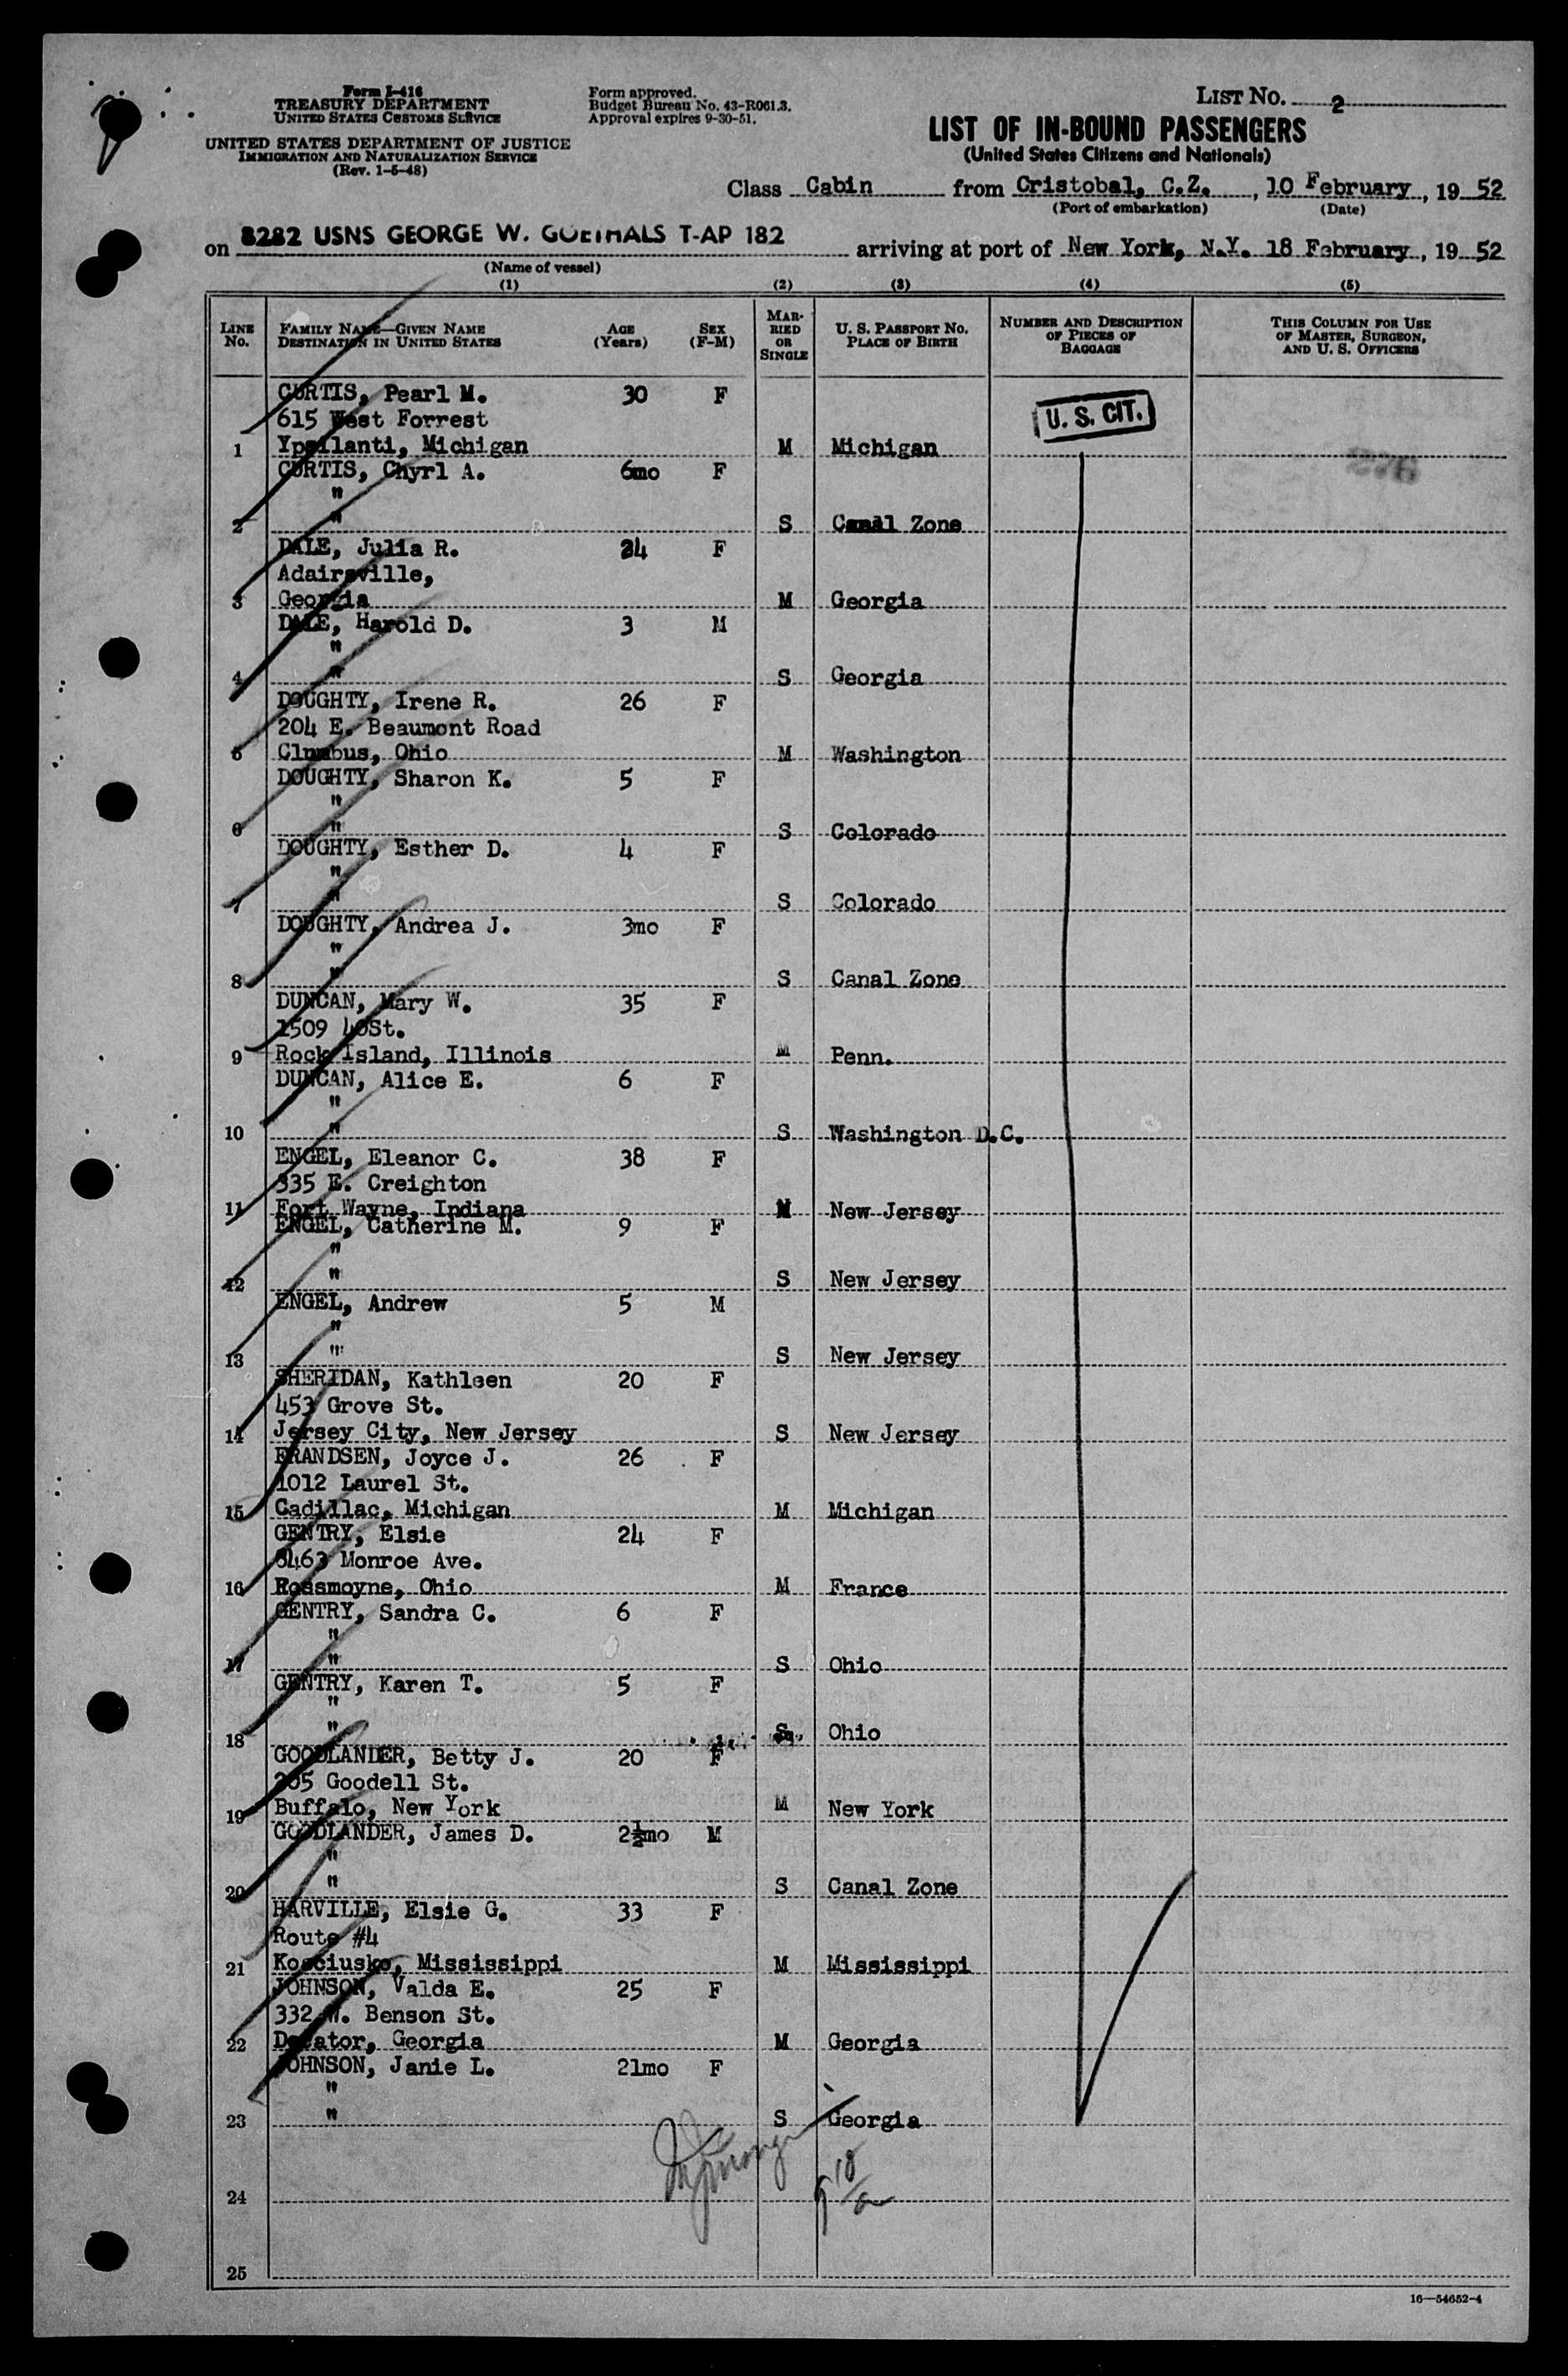 Form I-416
TREASURY DEPARTMENT
UNITED STATES CUSTOMS SERVICE
UNITED STATES DEPARTMENT OF JUSTICE
IMMIGRATION AND NATURALIZATION SERVICE
(Rev. 1-5-48)
Form approved.
Budget Bureau No. 43-R061.3.
Approval expires 9-30-51.
LIST NO. 2
LIST OF IN-BOUND PASSENGERS
(United States Citizens and Nationals)
Class Cabin from Cristobal, C.Z., 10 February, 19 52
(Port of embarkation) (Date)
on 8282 USNS GEORGE W. GOETHALS T-AP 182 arriving at port of New York, N.Y. 18 February, 19 52
(Name of vessel)
(1) (2) (3) (4) (5)
LINE No. FAMILY NAME—GIVEN NAME DESTINATION IN UNITED STATES AGE (Years) SEX (F-M) MARRIED OR SINGLE U. S. PASSPORT NO. PLACE OF BIRTH NUMBER AND DESCRIPTION OF PIECES OF BAGGAGE THIS COLUMN FOR USE OF MASTER, SURGEON, AND U. S. OFFICERS
CURTIS, Pearl M. 30 F
615 West Forrest U. S. CIT.
1 Ypsilanti, Michigan M Michigan
CURTIS, Chyrl A. 6mo F
"
2 " S Canal Zone
DALE, Julia R. 24 F
Adairsville,
3 Georgia M Georgia
DALE, Harold D. 3 M
"
4 " S Georgia
DOUGHTY, Irene R. 26 F
204 E. Beaumont Road
5 Clumbus, Ohio M Washington
DOUGHTY, Sharon K. 5 F
"
6 " S Colorado
DOUGHTY, Esther D. 4 F
"
7 " S Colorado
DOUGHTY, Andrea J. 3mo F
"
8 " S Canal Zone
DUNCAN, Mary W. 35 F
1509 40St.
9 Rock Island, Illinois M Penn.
DUNCAN, Alice E. 6 F
"
10 " S Washington D.C.
ENGEL, Eleanor C. 38 F
335 E. Creighton
11 Fort Wayne, Indiana M New Jersey
ENGEL, Catherine M. 9 F
"
12 " S New Jersey
ENGEL, Andrew 5 M
"
13 " S New Jersey
SHERIDAN, Kathleen 20 F
453 Grove St.
14 Jersey City, New Jersey S New Jersey
FRANDSEN, Joyce J. 26 F
1012 Laurel St.
15 Cadillac, Michigan M Michigan
GENTRY, Elsie 24 F
8463 Monroe Ave.
16 Rossmoyne, Ohio M France
GENTRY, Sandra C. 6 F
"
17 " S Ohio
GENTRY, Karen T. 5 F
"
18 " S Ohio
GOODLANDER, Betty J. 20 F
205 Goodell St.
19 Buffalo, New York M New York
GOODLANDER, James D. 2½mo M
"
20 " S Canal Zone
HARVILLE, Elsie G. 33 F
Route #4
21 Kosciusko, Mississippi M Mississippi
JOHNSON, Valda E. 25 F
332 W. Benson St.
22 Decator, Georgia M Georgia
JOHNSON, Janie L. 21mo F
"
23 " S Georgia
24
25
16—54652-4